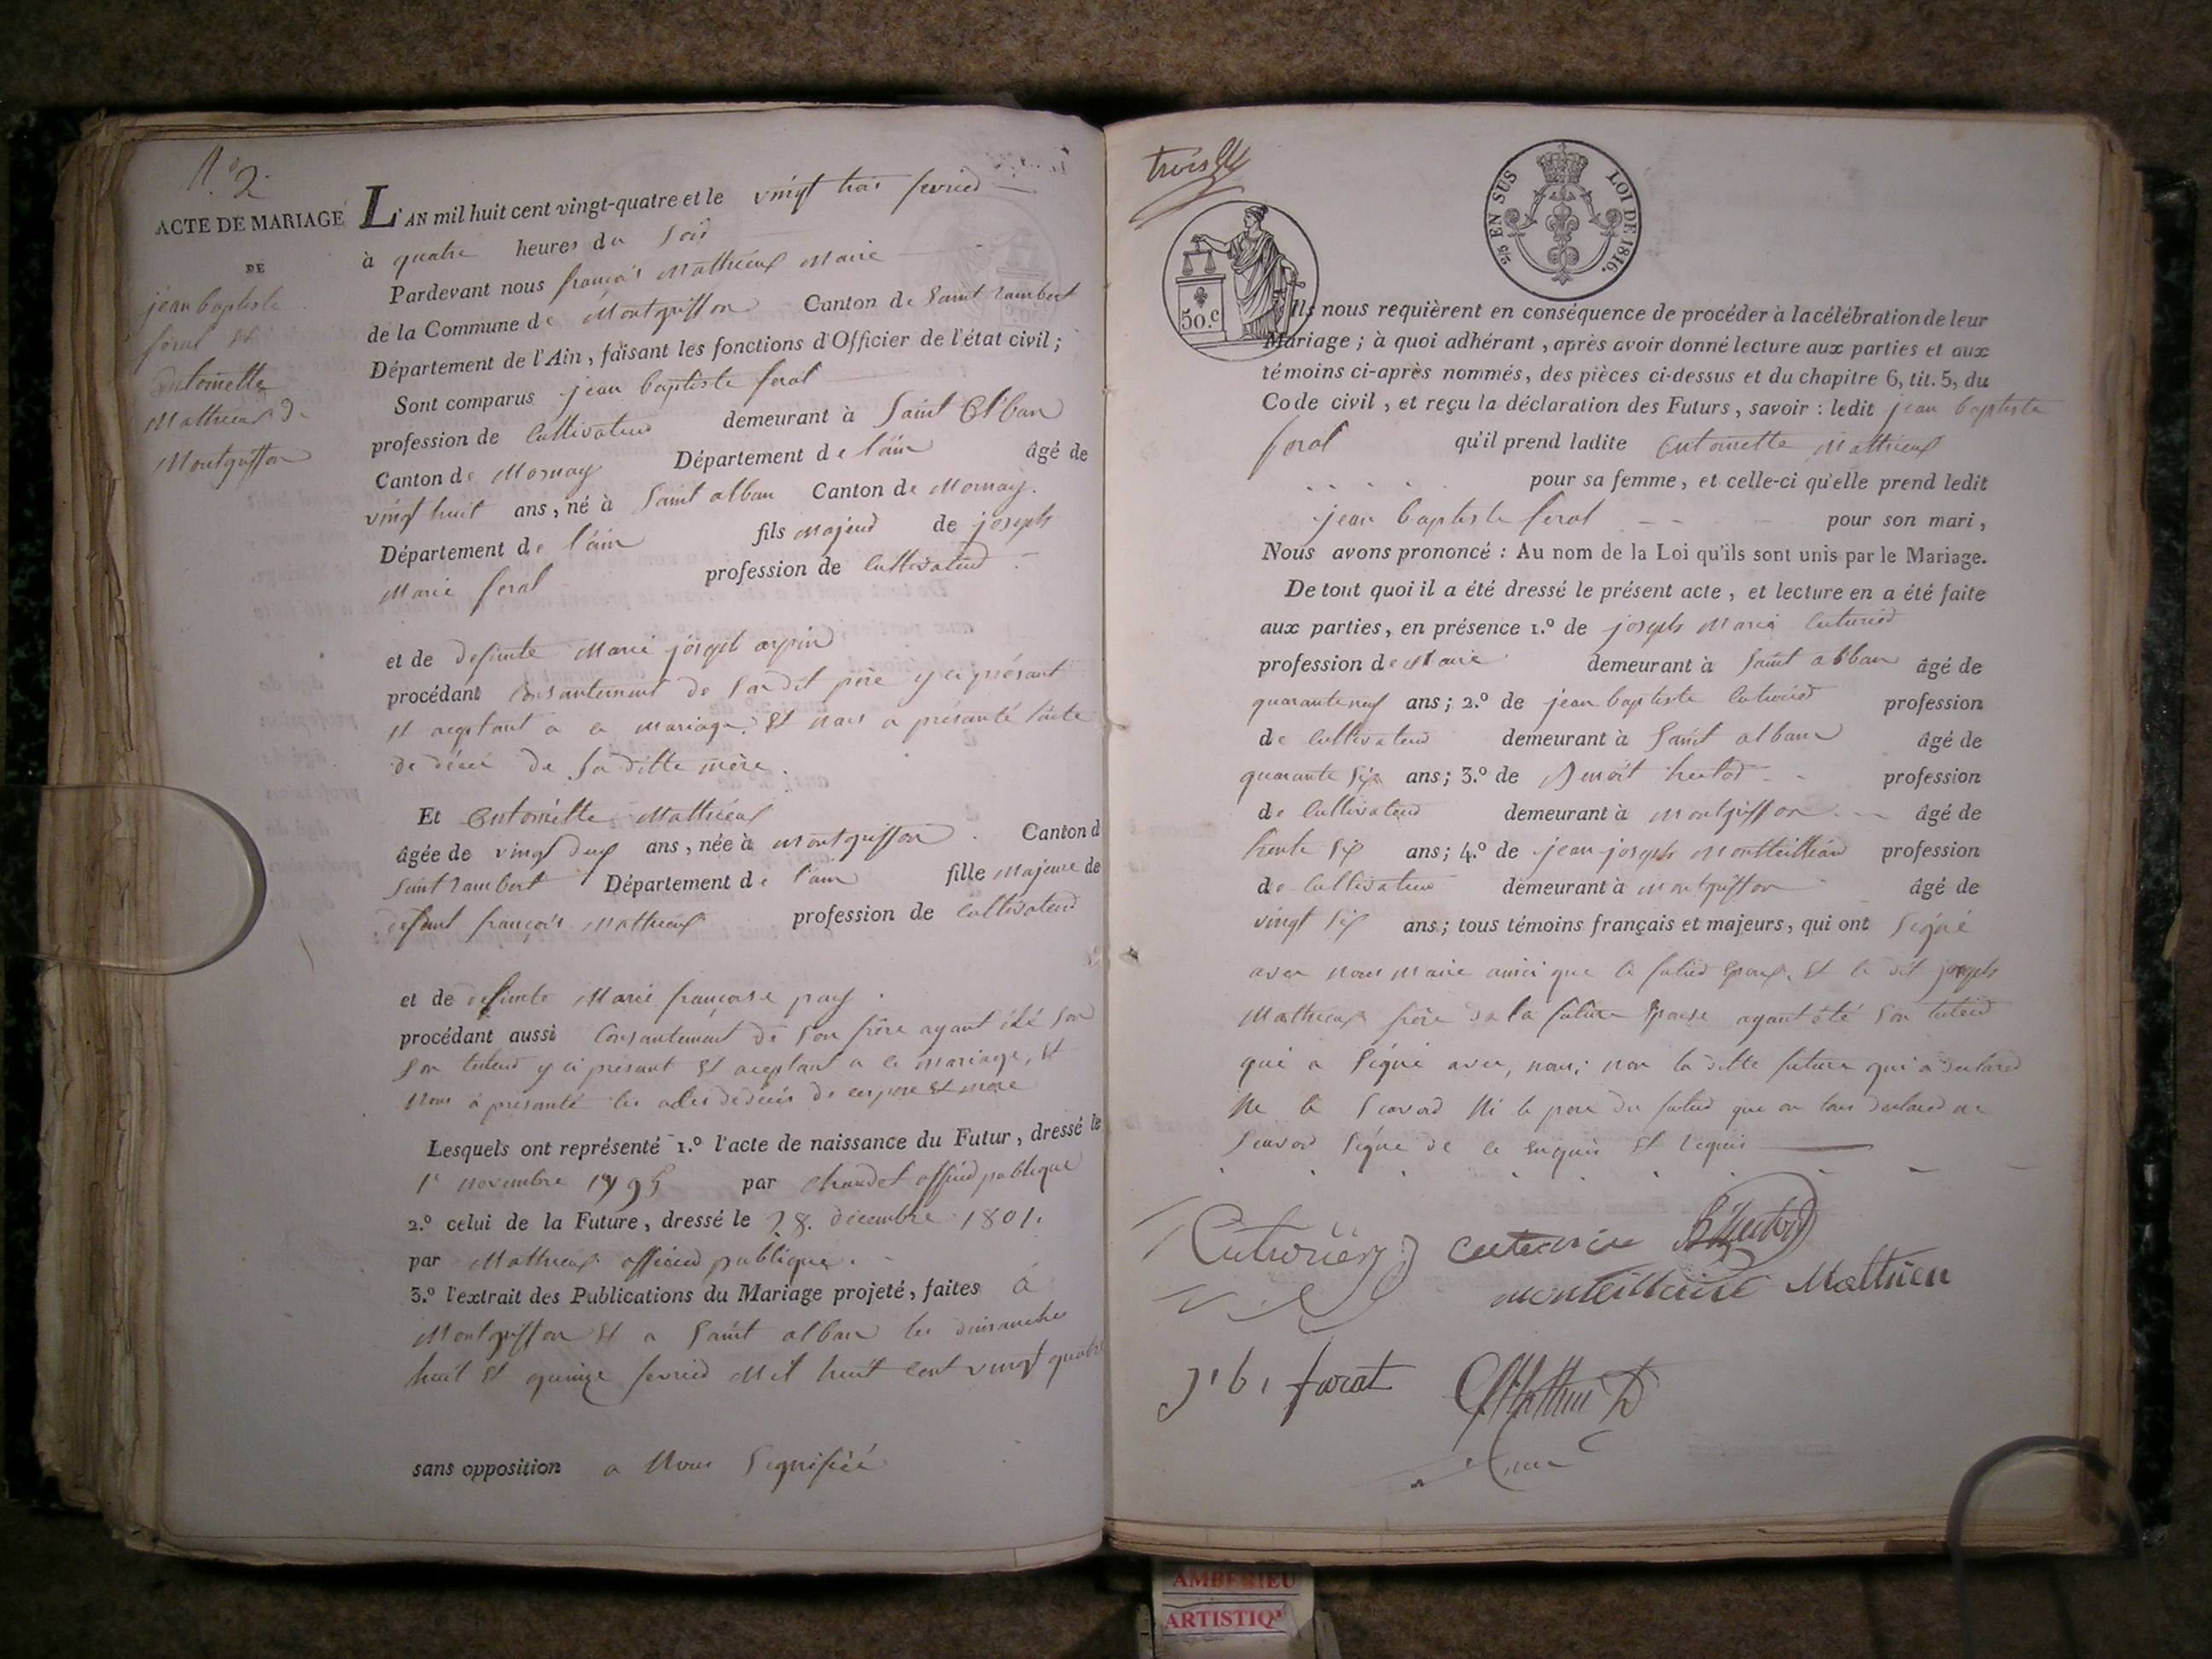 N.° 2.
ACTE DE MARIAGE
DE
jean baptiste
ferat et
antoinette
Mathieux de
Montgriffon
L'AN mil huit cent vingt-quatre et le vingt trois fevrier
à quatre heures du soir
Pardevant nous françois Mathieux Maire
de la Commune de Montgriffon Canton de Saint rambert
Département de l'Ain, faisant les fonctions d'Officier de l'état civil;
Sont comparus jean baptiste ferat
profession de Cultivateur demeurant à Saint alban
Canton de Mornay Département de l'ain âgé de
vingt huit ans, né à Saint alban Canton de Mornay.
Département de l'ain fils majeur de joseph
Marie ferat profession de Cultivateur
et de defunte Marie joseph arpin
procédant Consantement de Son dit père y ci présant
et aceptant a ce mariage. Et nous a présanté l'acte
de décès de Sa ditte mère.
Et antoinette Mathieux
âgée de vingt deux ans, née à montgriffon. Canton d
Saint rambert Département de l'ain fille majeure de
defunt françois Mathieux profession de Cultivateur
et de defunte Marie françoise
procédant aussi Consantement de Son frère ayant été Son
Son tuteur y ci présant et aceptant a ce mariage, et
Nous a présanté les actes de décès de ces père et mère
Lesquels ont représenté 1.° l'acte de naissance du Futur, dressé le
1er novembre 1795 par officier publique
2.° celui de la Future, dressé le 28. décembre 1801.
par Mathieux officier publique.
3.° l'extrait des Publications du Mariage projeté, faites à
Montgriffon et a Saint alban les dimanches
huit et quinze fevrier mil huit cent vingt quatre
sans opposition a Nous Signifiée
trois
2/10 EN SUS LOI DE 1816.
50.c
Ils nous requièrent en conséquence de procéder à la célébration de leur
Mariage; à quoi adhérant, après avoir donné lecture aux parties et aux
témoins ci-après nommés, des pièces ci-dessus et du chapitre 6, tit. 5, du
Code civil, et reçu la déclaration des Futurs, savoir: ledit jean baptiste
ferat qu'il prend ladite antoinette Mathieux
pour sa femme, et celle-ci qu'elle prend ledit
jean baptiste ferat pour son mari,
Nous avons prononcé: Au nom de la Loi qu'ils sont unis par le Mariage.
De tout quoi il a été dressé le présent acte, et lecture en a été faite
aux parties, en présence 1.° de joseph Marie
profession de Maire demeurant à Saint alban âgé de
quarante neuf ans; 2.° de jean baptiste profession
de Cultivateur demeurant à Saint alban âgé de
quarante six ans; 3.° de Benoit profession
de Cultivateur demeurant à montgriffon âgé de
trente six ans; 4.° de jean joseph profession
de Cultivateur demeurant à montgriffon âgé de
vingt six ans; tous témoins français et majeurs, qui ont Signé
avec nous maire ainsi que le futur Epoux. et le dit joseph
Mathieux frère de la future Epouse ayant été Son tuteur
qui a Signé avec, nous; non la ditte future qui a declaré
Ne le Scavoir Ni le pere du futur que on tous declaré ne
Scavoir Signé de ce enquis et requis
Mathieu
j. b. farat